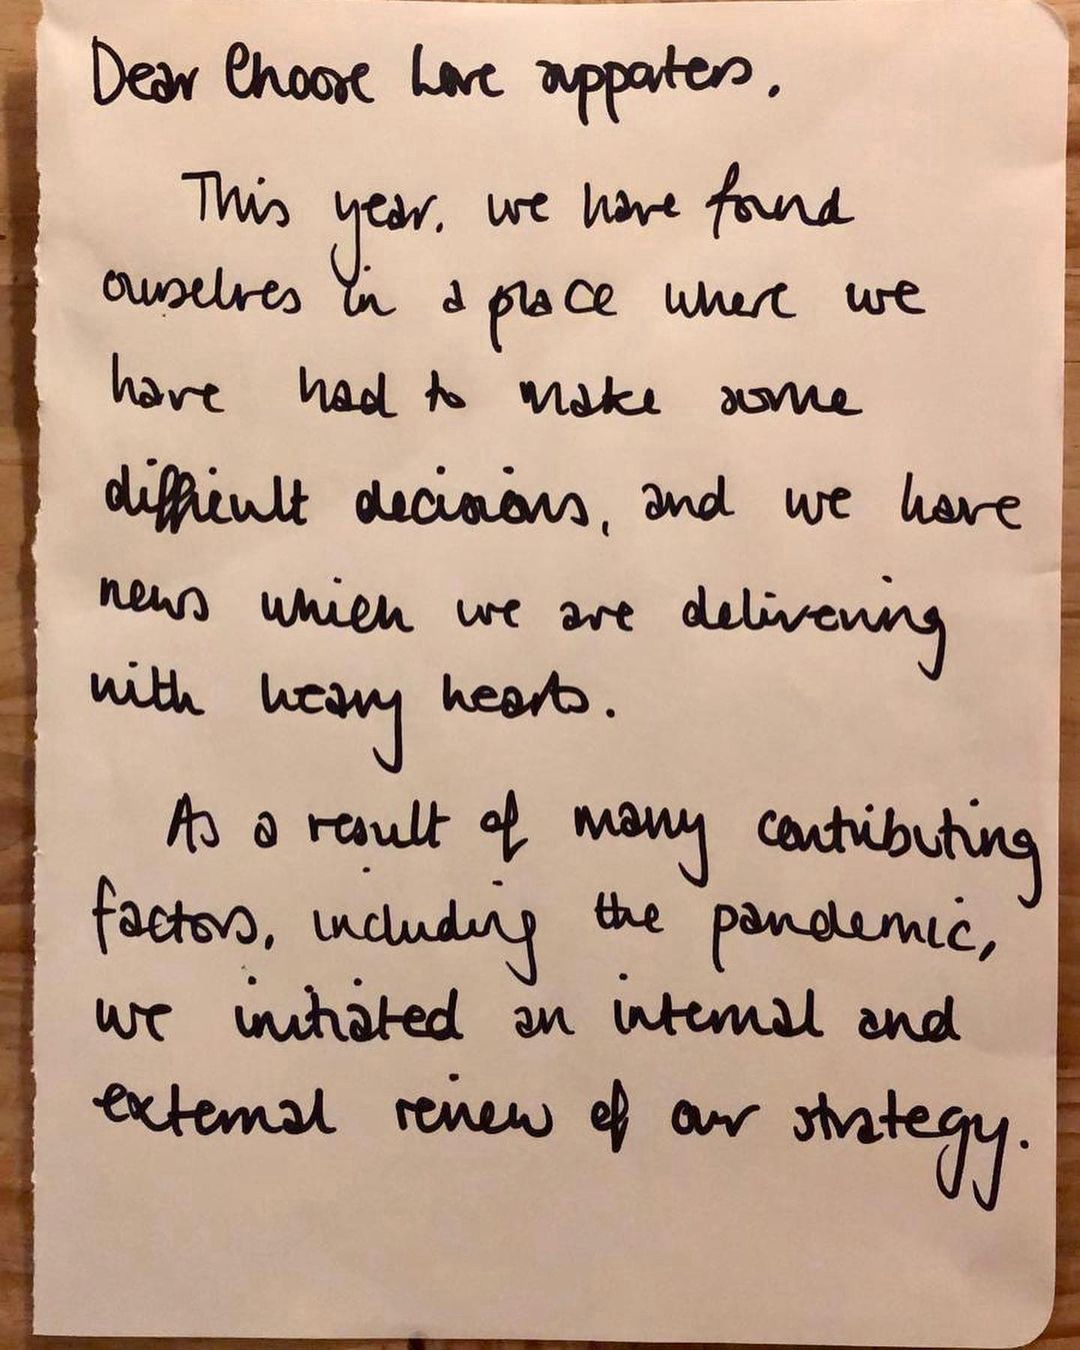 Dear Choose Love supporters,
This year, we have found
ourselves in a place where we
have had to make some
difficult decisions, and we have
news which we are delivering
with heavy hearts.
As a result of many contributing
factors, including the pandemic,
we initiated an internal and
external review of our strategy.